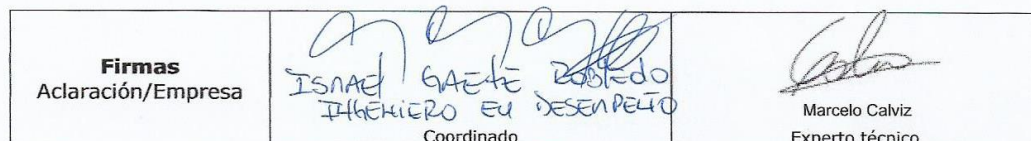 Firmas
Aclaración/Empresa
ISRAEL GAETE ROBLEDO
INGENIERO EN DESEMPEÑO
Coordinado
Marcelo Calviz
Experto técnico